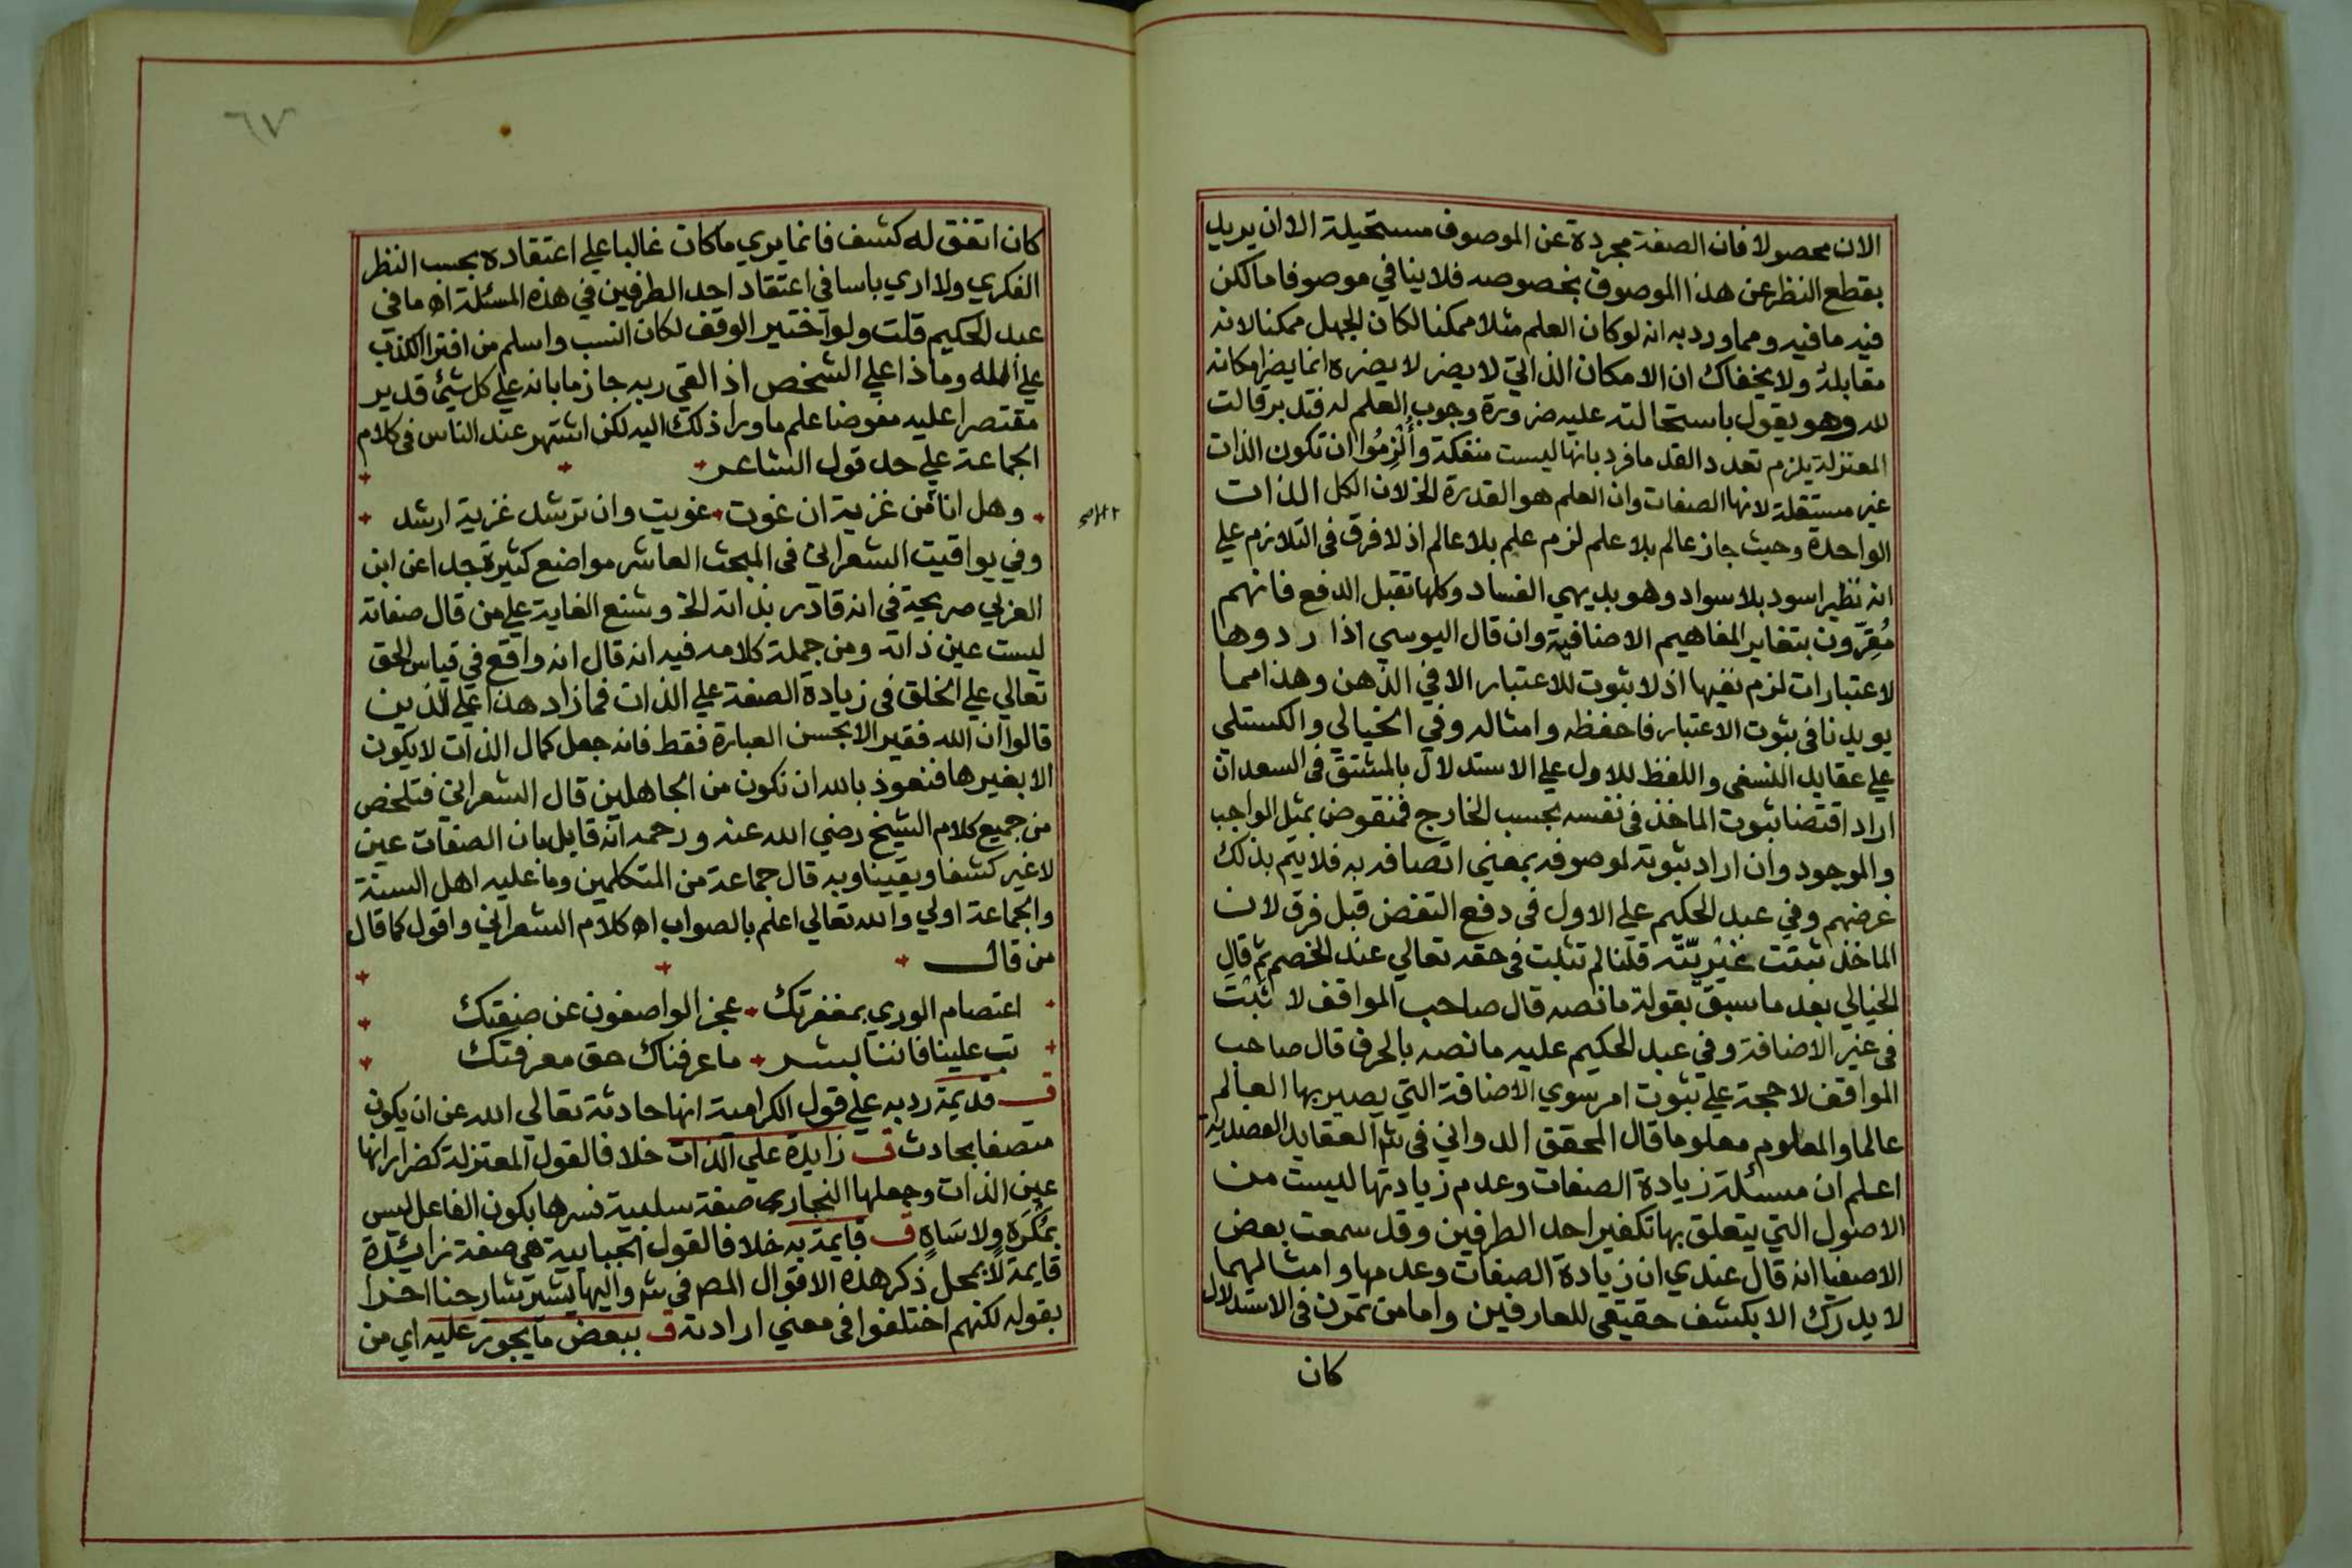 الان محصولا فان الصفة مجردة عن الموصوف مستحيلة الا ان يريد
بقطع النظر عن هذا الموصوف بخصوصه فلا ينافي موصوفا ما لكن
فيه ما فيه ومما ورد به انه لو كان العلم مثلا ممكنا لكان الجهل ممكنا لانه
مقابلة ولا يخفاك ان الامكان الذاتي لا يضر لا يضره انما يضر امكانه
لله وهو يقول باستحالته عليه ضرورة وجوب العلم له فتدبر قالت
المعتزلة يلزم تعدد القدما فرد بانها ليست منفكة وأُلْزِمُوا ان تكون الذات
غير مستقلة لانها الصفات وان العلم هو القدرة الخ لان الكل الذات
الواحدة وحيث جاز عالم بلا علم لزم علم بلا عالم اذ لا فرق في التلازم علي
انه نظير اسود بلا سواد وهو بديهي الفساد وكلها تقبل الدفع فانهم
مُقِرّون بتغاير المفاهيم الاضافية وان قال اليوسي اذا ردوها
لاعتبارات لزم نفيها اذ لا ثبوت للاعتبار الا في الذهن وهذا مما
يويدنا في ثبوت الاعتبار فاحفظه وامثاله وفي الخيالي والكستلي
علي عقايد النسفي واللفظ للاول علي الاستدلال بالمشتق في السعد ان
اراد اقتضا ثبوت الماخذ في نفسه بحسب الخارج فمنقوض بمثل الواجب
والموجود وان اراد ثبوته لموصوفه بمعني اتصافه به فلا يتم بذلك
غرضهم وفي عبد الحكيم علي الاول في دفع النقض قبل فرق لان
الماخذ ثبتت غيريّته قلنا لم تثبت في حقه تعالي عند الخصم ثم قال
الخيالي بعد ما سبق بقوله ما نصه قال صاحب المواقف لا ثبت
في غير الاضافة وفي عبد الحكيم عليه ما نصه بالحرف قال صاحب
المواقف لا حجة علي ثبوت امر سوي الاضافة التي يصير بها العالم
عالما والمعلوم معلوما قال المحقق الدواني في شم العقايد العضدية
اعلم ان مسئلة زيادة الصفات وعدم زيادتها ليست من
الاصول التي يتعلق بها تكفير احد الطرفين وقد سمعت بعض
الاصفيا انه قال عندي ان زيادة الصفات وعدمها وامثالهما
لا يدرك الا بكشف حقيقي للعارفين واما من تمرن في الاستدلال
كان
٦٧
كان اتفق له كشف فانما يري ما كان غالبا علي اعتقاده بحسب النظر
الفكري ولا اري باسا في اعتقاد احد الطرفين في هذه المسئلة اه ما في
عبد الحكيم قلت ولو اختير الوقف لكان انسب واسلم من افترا الكذب
علي الله وماذا علي الشخص اذا لقي ربه جازما بانه علي كل شيئ قدير
مقتصرا عليه مفوضا علم ما ورا ذلك اليه لكن اشتهر عند الناس في كلام
الجماعة علي حد قول الشاعر
وهل انا من غزية ان غوت غويت وان ترشد غزية ارشد
وفي يواقيت الشعراني في المبحث العاشر مواضع كثيرة جدا عن ابن
العزبي صريحة في انه قادر بذاته الخ وشنع الغاية علي من قال صفاته
ليست عين ذاته ومن جملة كلامه فيه انه قال انه واقع في قياس الحق
تعالي علي الخلق في زيادة الصفة علي الذات فما زاد هذا علي الذين
قالوا ان الله فقير الا بحسن العبارة فقط فانه جعل كمال الذات لا يكون
الا بغيرها فنعوذ بالله ان نكون من الجاهلين قال الشعراني فتلخص
من جميع كلام الشيخ رضي الله عنه ورحمه انه قايل بان الصفات عين
لا غير كشفا ويقينا وبه قال جماعة من المتكلمين وما عليه اهل السنة
والجماعة اولي والله تعالي اعلم بالصواب اه كلام الشعراني واقول كما قال
من قال
اعتصام الوري بمغفرتك عجز الواصفون عن صفتك
تب علينا فاننا بشر ما عرفناك حق معرفتك
ق قديمة رد به علي قول الكرامية انها حادثة تعالي الله عن ان يكون
متصفا بحادث ق زايدة علي الذات خلافا لقول المعتزلة كضرار انها
عين الذات وجعلها النجار صفة سلبية فسرها بكون الفاعل ليس
بمُكْرَه ولا سَاهٍ ق قايمة به خلافا لقول الجبايية هي صفة زائيدة
قايمة لا بمحل ذكر هذه الاقوال المص في شم واليها يشير شارحنا اخرا
بقوله لكنهم اختلفوا في معني ارادته ق ببعض ما يجوز عليه اي من